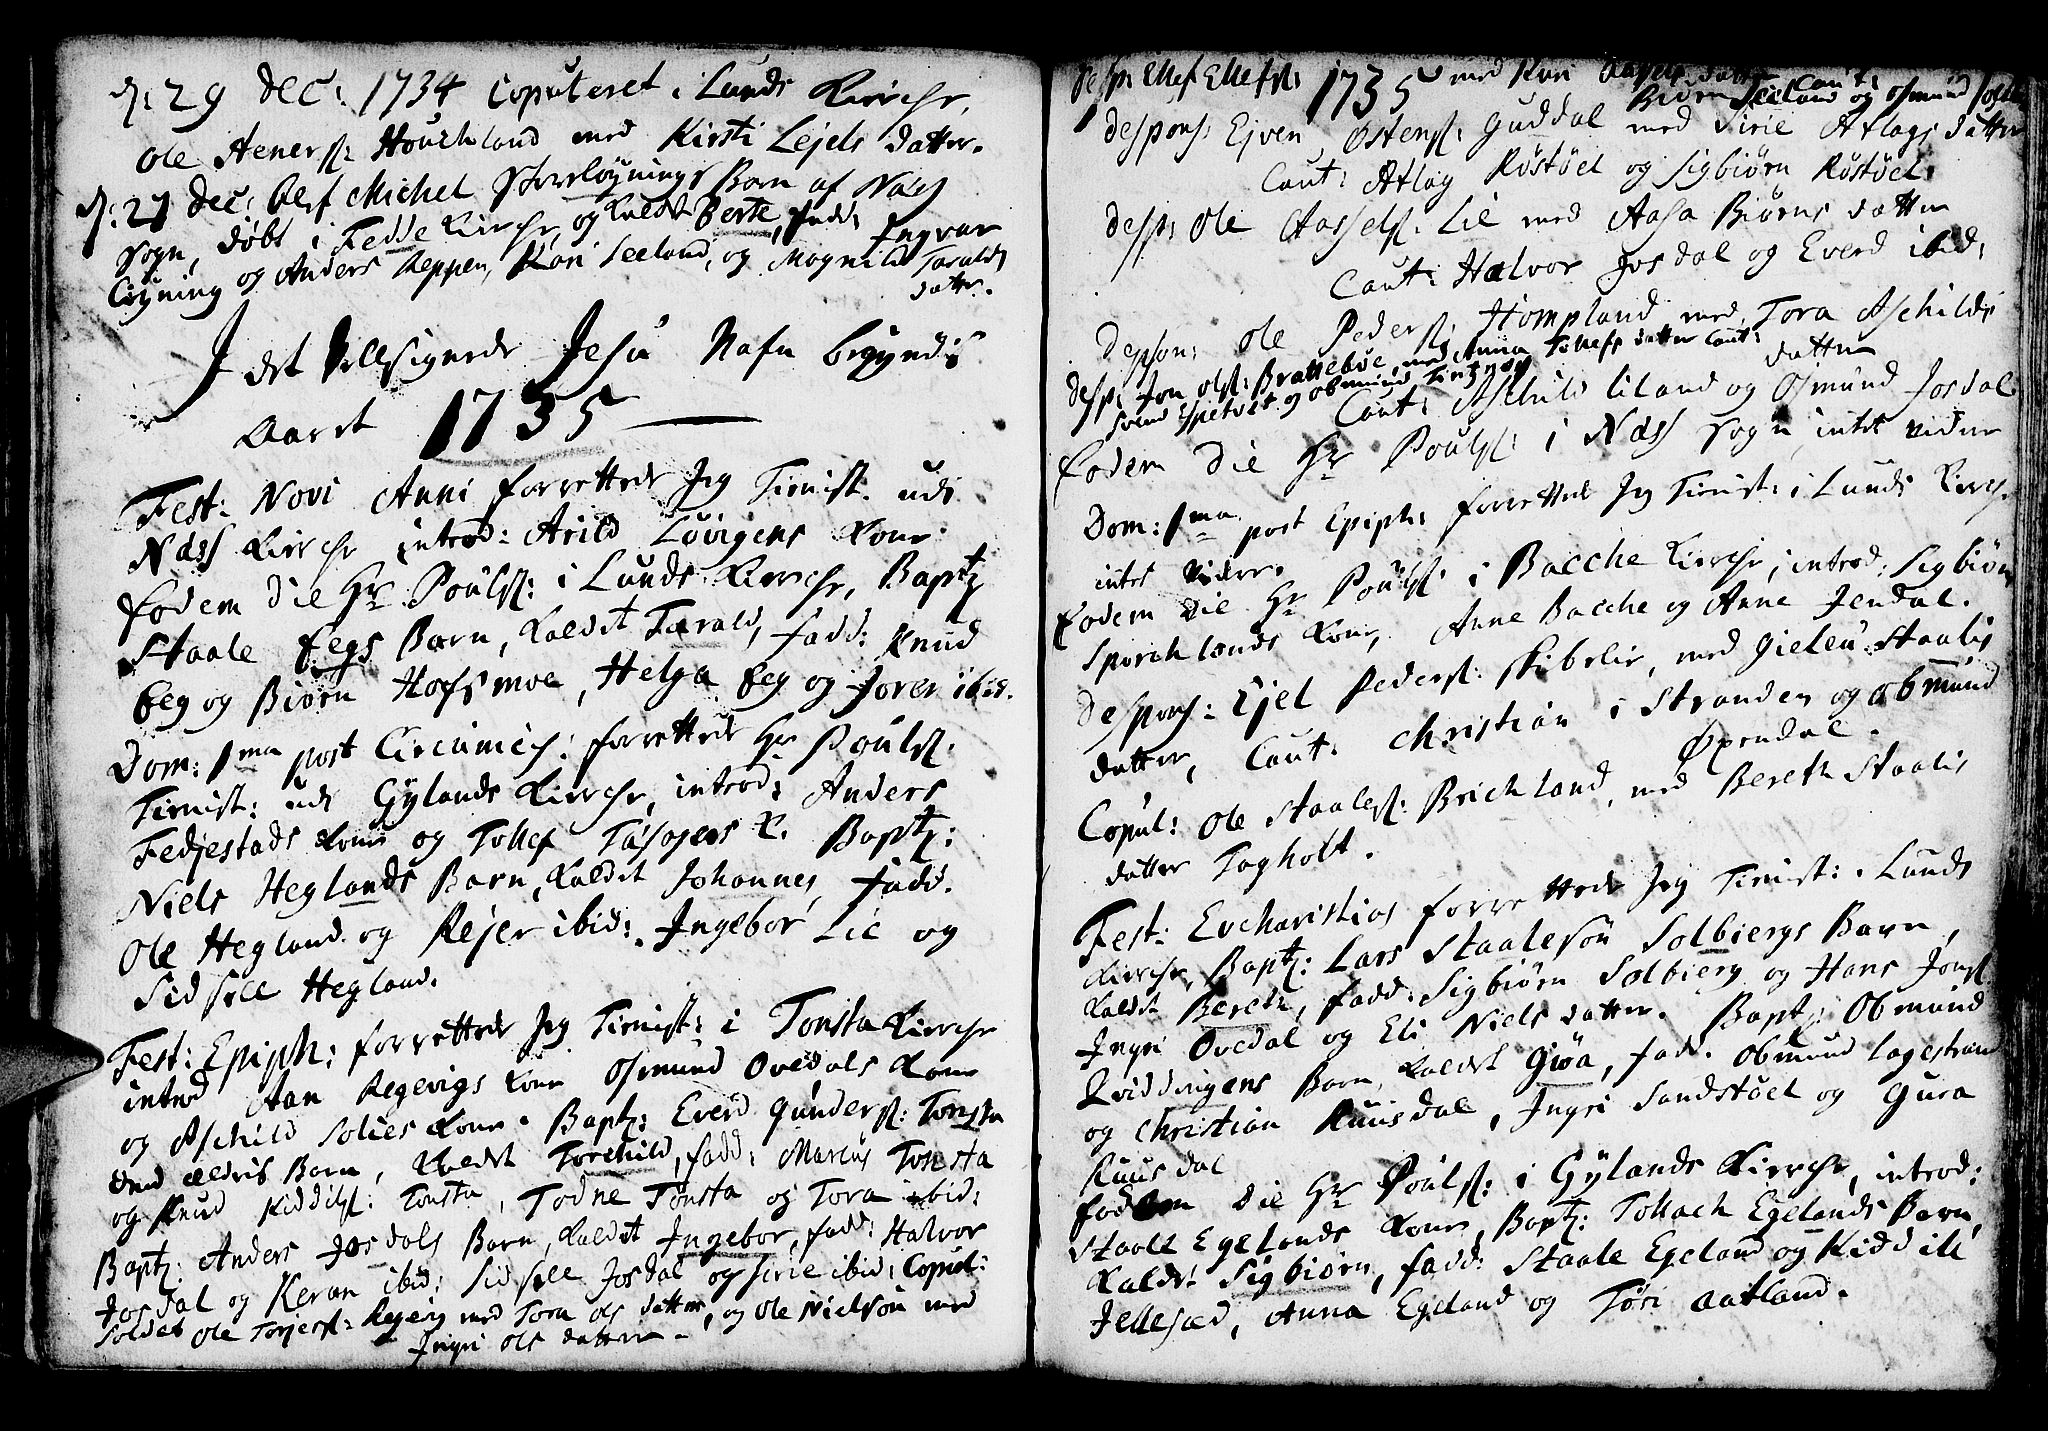 d: 29 Dec: 1734 Copuleret i Lunds Kirche,
Ole Aeners: Houchland med Kirsti Lejels datter.
d: 27 Dec: blef Michel Barn af Næs
Sogn, døbt i Fedde Kirche, og kaldet Berte, fadd: Ingvar
og Anders Reppen, Kari Seeland, og Magnild Taralds
datter.
I det Vellsignede Jesu Nafn begyndis
Aaret 1735
Fest: Novi Anni forrettede Jeg Tienist. udi
Næss Kirche introd: Arild Lovigens Kone.
Eodem die Hr Pouls: i Lunds Kirche, Bapt:
Staale Eegs Barn, kaldet Tarald, fadd: Knud
Eeg og Biørn Hofsmoe, Helga Eeg og Joren ibid.
Dom: 1ma post Circumcis: forrettede Hr Pouls:
Tienist: udi Gylands Kirche, introd: Anders
Fedjestads Kone og Tollef K. Bapt:
Niels Heglands Barn, kaldet Johannes, fadd.
Ole Hegland og Rejer ibid: Ingebor Lie og
Sidsele Hegland.
Fest: Epiph: forrettede Jeg Tienist: i Tonsta Kirche
introd Aan Regevigs Kone Osmund Ovedals Kone
og Aschild Solies Kone. Bapt: Everd Gunders: Tonsta
deed ældris Barn, kaldet Torchild, fadd: Marcus Tonsta
og Knud Kiddils: Tonsta, Todne Tonsta og Tora ibid:
Bapt: Anders Josdals Barn, kaldet Ingebor, fadd: Halvor
Josdal og Keran ibid: Sidsele Josdal og Sirie ibid: Copul:
Soldat Ole Torjers: Regevig med Tora Ols datter, og Ole Nielsøn med
Ingri Ols datter.
Desp: Ellef Ellefs: 1735 med Kari datter Caut:
Biørn Seeland og Osmund
Despons: Ejven Østens: Guddal med Sirie Atlags datter
Caut: Atlag Røstøel og Sigbiørn Røstøel.
Desp: Ole Aassels: Lie med Aasa Biørns datter
Caut: Halvor Josdal og Everd ibid:
Despon: Ole Peders: Hompland med Tora Aschilds
datter
Desp: Jon Ols: Brattebøe, med Anna Tollefs datter Caut:
Svend Espetvet og Obmund
Caut: Aschild Liland og Osmund Josdal
Eodem die Hr Pouls: i Næss Sogn intet videre
Dom: 1ma post Epiph: forrettede Jeg Tienist: i Lunds Kirche.
intet videre.
Eodem die Hr Pouls: i Bacche Kirche, introd: Sigbiørn
Sporchlands Kone, Anne Bacche og Anne Jendal.
Despons: Ejel Peders: Skibelie, med Gielen Staalis
datter, Caut: Christian i Stranden og Obmund
Øxendal.
Copul: Ole Staales: Brichland, med Bereth Staalis
datter Tagholt.
Fest: Evcharistias forrettede Jeg Tienist: i Lunds
Kirche, Bapt: Lars Staalesøn Solbiergs Barn,
kaldet Bereth, fadd: Sigbiørn Solbierg og Hans Jons:
Ingri Ovedal og Eli Niels datter. Bapt: Obmund
Qviddingens Barn, kaldet Giøa, fadd. Obmund Lagestrand
og Christian Ruusdal, Ingri Sandstøel og Gura
Ruusdal
Eodem die Hr Pouls: i Gylands Kirche, introd:
Staale Egelands Kone, Bapt: Tollach Egelands Barn,
kaldet Sigbiørn, fadd: Staale Egeland og Kiddill
Jellesæd, Anna Egeland og Tøri Aatland.